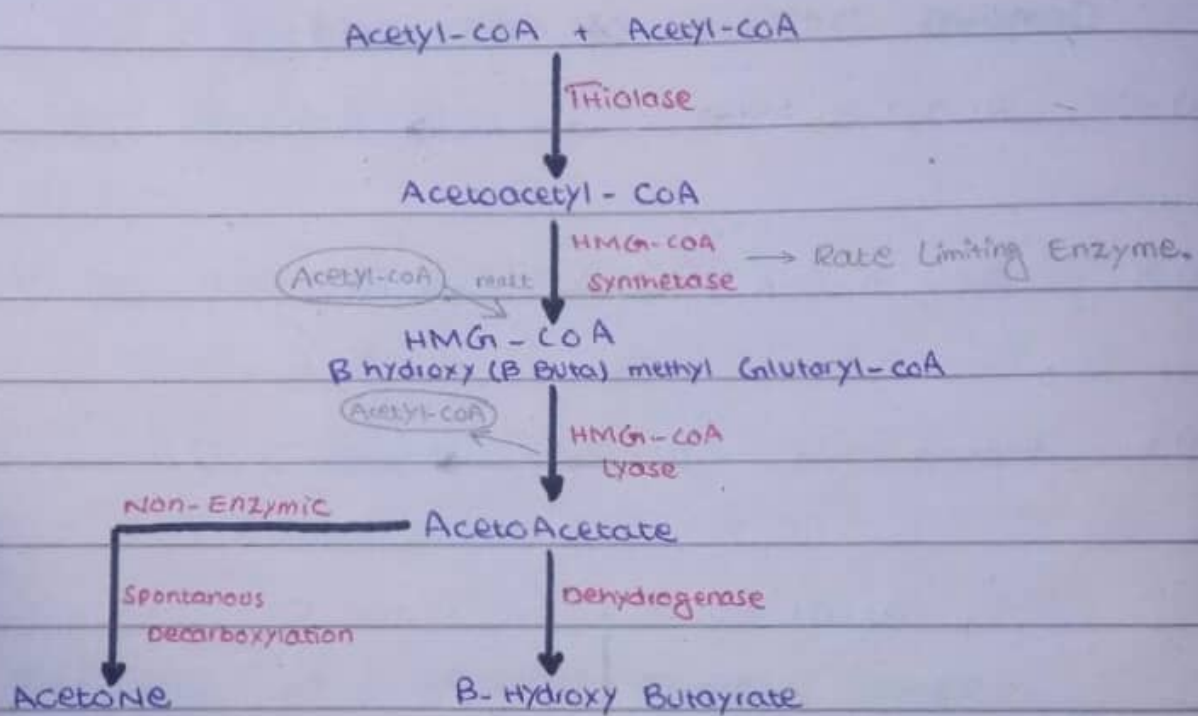 Acetyl-COA + Acetyl-COA
THiolase
Acetoacetyl - COA
HMG-COA → Rate Limiting Enzyme.
Synthetase
Acetyl-COA
HMG-COA
B hydroxy (B Buta) methyl Glutaryl-COA
Acetyl-COA
HMG-COA
Lyase
Non-Enzymic
AcetoAcetate
Spontanous
Decarboxylation
Dehydrogenase
Acetone
B-Hydroxy Butayrate